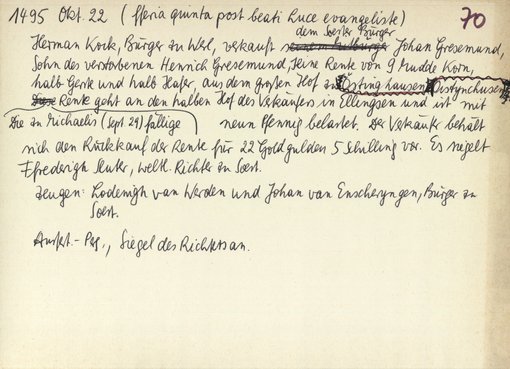 1495 Okt. 22 (fferia quinta post beati Luce evangeliste) 70
dem Soester Bürger
Herman Kork, Bürger zu Werl, verkauft Johan Gresemund,
Sohn des verstorbenen Henrich Gresemund, seine Rente von 9 Mudde Korn,
halb Gerste und halb Hafer, aus dem großen Hof zu Östinghausen
Rente geht an den halben Hof des Verkäufers in Ellingsen und ist mit
Die zu Michaelis (Sept 29) fällige neun Pfennig belastet. Der Verkäufer behält
sich den Rückkauf der Rente für 22 Goldgulden 5 Schilling vor. Es siegelt
Ffrederigh richter, weltl. Richter zu Soest.
Zeugen: Lodewigh van Werden und Johan van Enscheryngen, Bürger zu
Soest.
Ausf. - Perg., Siegel des Richters an.